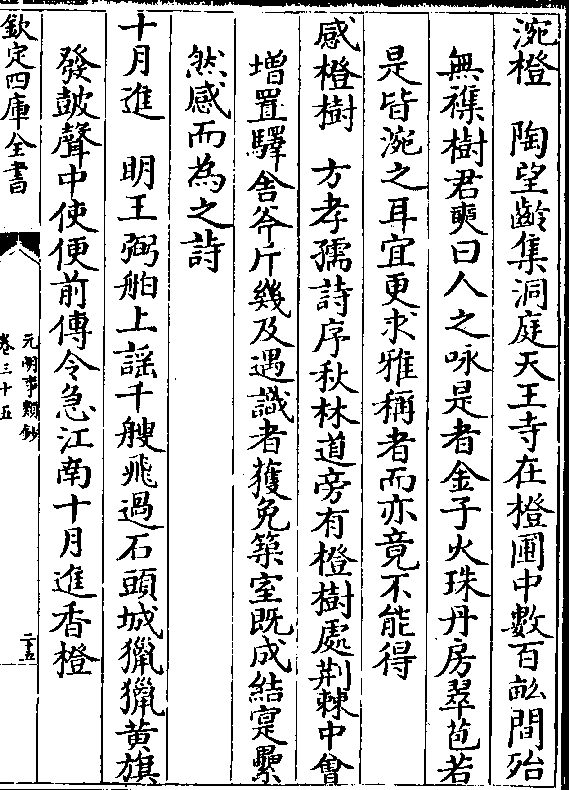 涴橙　陶望齡集洞庭天王寺在橙圃中數百畝間殆
無襍樹君奭曰人之咏是者金子火珠丹房翠苞若
是皆涴之耳宜更求雅稱者而亦竟不能得
感橙樹　方孝孺詩序秋林道旁有橙樹處荆棘中會
増置驛舍斧斤幾及遇識者獲免築室既成結寔纍
然感而為之詩
十月進　明王弼舶上謡千艘飛過石頭城獵獵黄旗
發皷聲中使便前傳令急江南十月進香橙
欽定四庫全書
元明事類鈔
卷三十五
二五